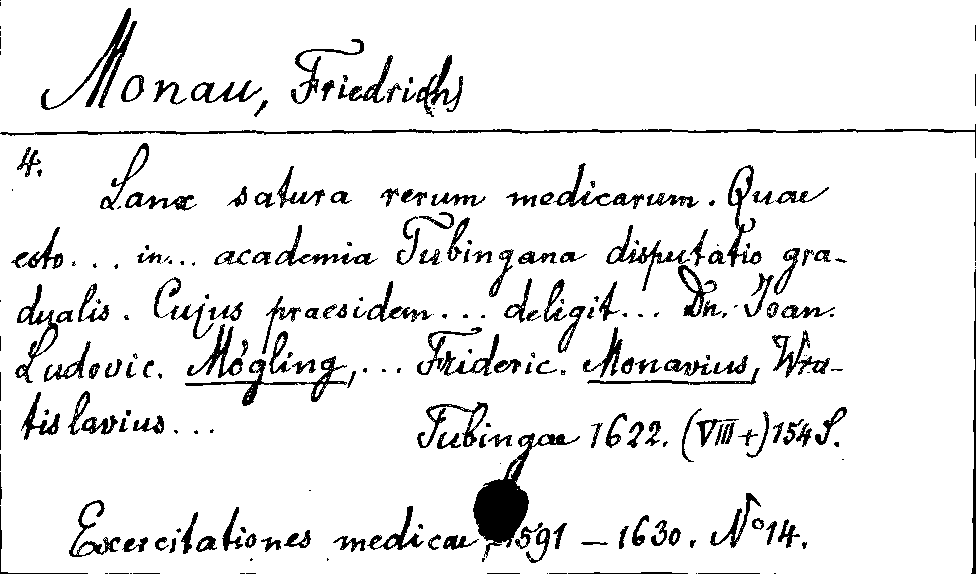 Monau, Friedrich
4.
Lanx satura rerum medicarum. Quae
esto... in... academia Tubingana disputatio gra-
dualis. Cujus praesidem... deligit... Dn. Joan.
Ludovic. Mögling,... Frideric. Monavius, Wra-
tislavius...
Tubingae 1622. (VIII+)154 S.
Exercitationes medicae, 1591 — 1630. N° 14.